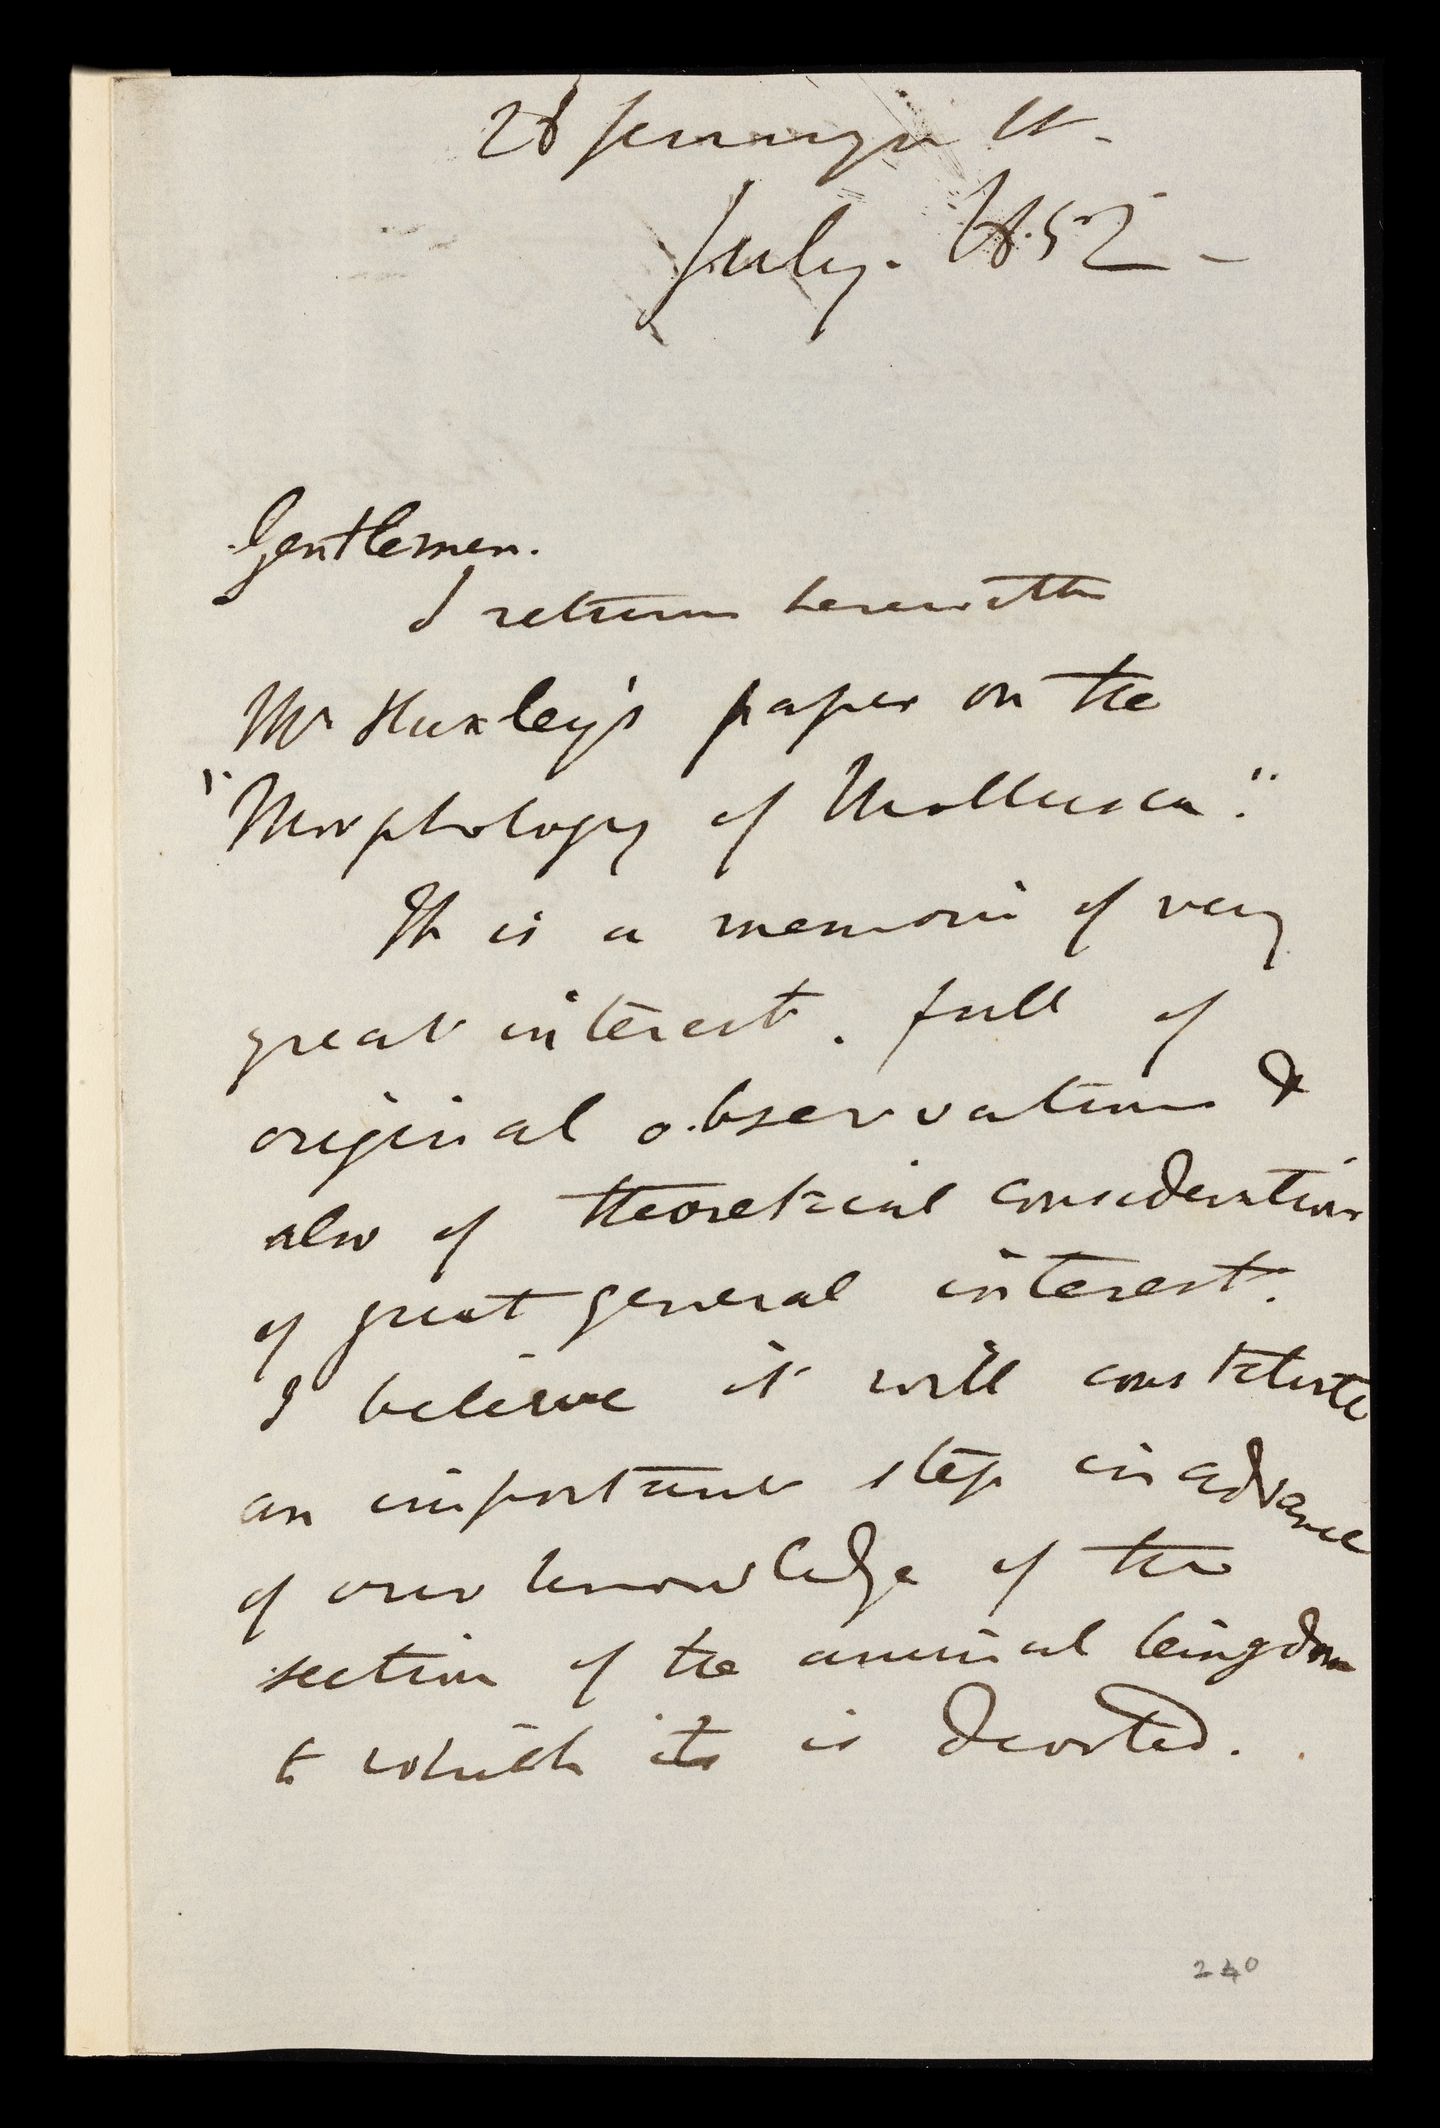 28 Jermyn St.
July. 1852 -
Gentlemen.
I return herewith
Mr Huxley's paper on the
"Morphology of Mollusca".
It is a memoir of very
great interest. full of
original observation &
also of theoretical consideration
of great general interest.
I believe it will constitute
an important step in advance
of our knowledge of the
section of the animal kingdom
to which it is devoted.
240